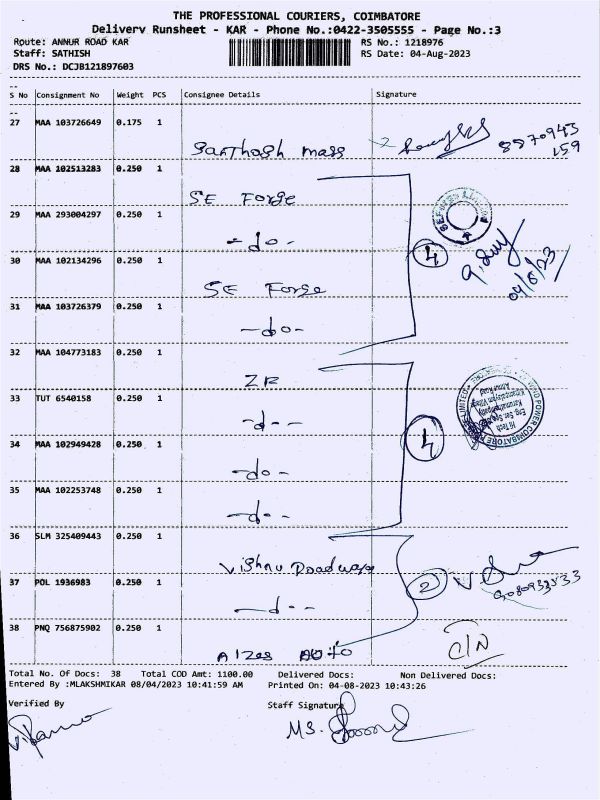 THE PROFESSIONAL COURIERS, COIMBATORE
Delivery Runsheet - KAR - Phone No.:0422-3505555 - Page No.:3
Route: ANNUR ROAD KAR RS No.: 1218976
Staff: SATHISH RS Date: 04-Aug-2023
DRS No.: DCJB121897603
S No Consignment No Weight PCS Consignee Details Signature
27 MAA 103726649 0.175 1
Santhosh mass
28 MAA 102513283 0.250 1
SE Forge
29 MAA 293004297 0.250 1
-do-
4
04/8/23
30 MAA 102134296 0.250 1
SE Forge
31 MAA 103726379 0.250 1
-do-
32 MAA 104773183 0.250 1
ZR
33 TUT 6540158 0.250 1
-d--
34 MAA 102949428 0.250 1
-do-
4
35 MAA 102253748 0.250 1
-d--
36 SLM 325409443 0.250 1
Vishnu Roadways
37 POL 1936983 0.250 1
-d--
2
38 PNQ 756875902 0.250 1
A1zes Auto
C/N
Total No. Of Docs: 38 Total COD Amt: 1100.00 Delivered Docs: Non Delivered Docs:
Entered By :MLAKSHMIKAR 08/04/2023 10:41:59 AM Printed On: 04-08-2023 10:43:26
Verified By Staff Signature
MS.